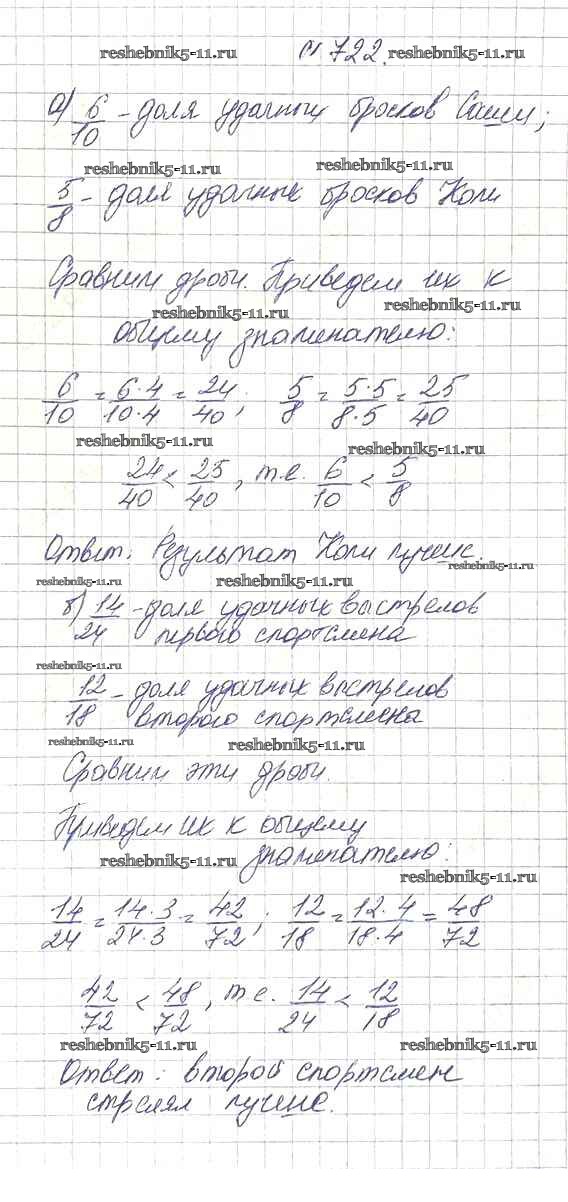 reshebnik5-11.ru № 722. reshebnik5-11.ru
а) 6/10 - доля удачных бросков Саши;
reshebnik5-11.ru reshebnik5-11.ru
5/8 - доля удачных бросков Коли
Сравним дроби. Приведем их к
reshebnik5-11.ru reshebnik5-11.ru
общему знаменателю:
6/10 = 6·4/10·4 = 24/40; 5/8 = 5·5/8·5 = 25/40
reshebnik5-11.ru reshebnik5-11.ru
24/40 < 25/40, т.е. 6/10 < 5/8
Ответ: Результат Коли лучше.
reshebnik5-11.ru
reshebnik5-11.ru reshebnik5-11.ru
б) 14/24 - доля удачных выстрелов
первого спортсмена
reshebnik5-11.ru
12/18 - доля удачных выстрелов
второго спортсмена
reshebnik5-11.ru reshebnik5-11.ru
Сравним эти дроби.
Приведем их к общему
знаменателю:
reshebnik5-11.ru reshebnik5-11.ru
14/24 = 14·3/24·3 = 42/72; 12/18 = 12·4/18·4 = 48/72
42/72 < 48/72, т.е. 14/24 < 12/18
reshebnik5-11.ru reshebnik5-11.ru
Ответ: второй спортсмен
стрелял лучше.